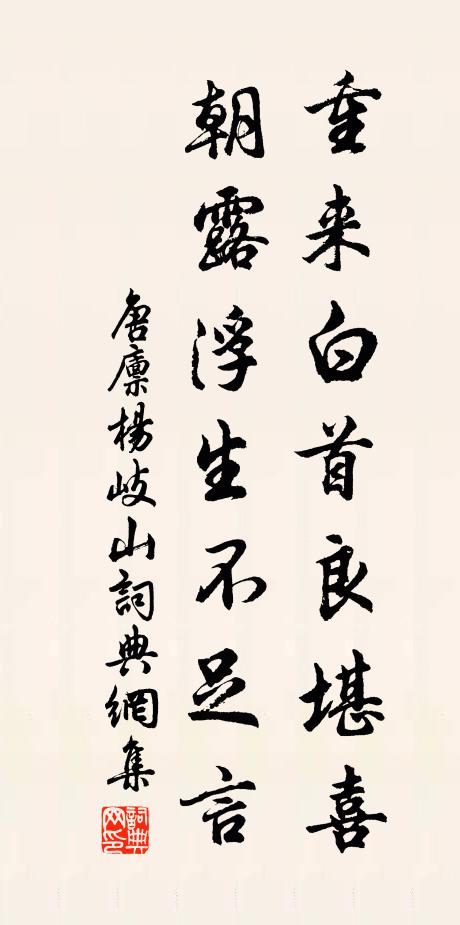 重来白首良堪喜
朝露浮生不足言
唐廩楊岐山詞典網集
詞典网印